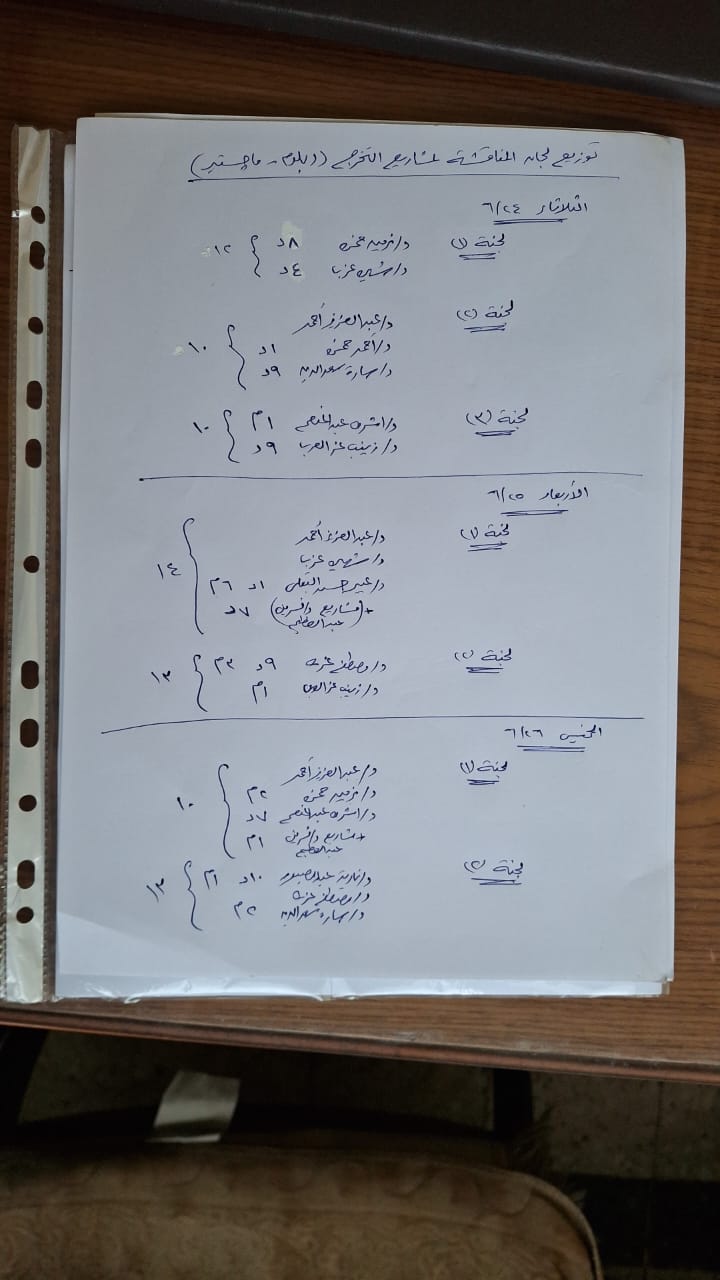 توزيع لجان المناقشة لمشاريع التخرج (دبلوم - ماجستير)
الثلاثاء ٦/٢٤
لجنة (١) د/ نرمين حمزه ٨د } ١٢
د/ شهير عزب ٤د
لجنة (٢) د/ عبد العزيز أحمد
د/ أحمد حمزه ١د } ١٠
د/ سارة سعد الدين ٩د
لجنة (٣) د/ اشرف عبد المنعم ١م } ١٠
د/ زينب عز العرب ٩د
الأربعاء ٦/٢٥
لجنة (١) د/ عبد العزيز أحمد
د/ شهير عزب } ١٤
د/ عبير حسن ١د ٦م
+ (مشاريع د/ نسرين ٧د
عبد العظيم)
لجنة (٢) د/ مصطفى عزت ٩د ٣م } ١٣
د/ زينب عز العرب ١م
الخميس ٦/٢٦
لجنة (١) د/ عبد العزيز أحمد
د/ نرمين حمزه ٢م } ١٠
د/ اشرف عبد المنعم ٧د
+ مشاريع د/ نسرين ١م
عبد العظيم
لجنة (٢) د/ نادية ١٠د ١م } ١٣
د/ مصطفى عزت
د/ سارة سعد الدين ٢م